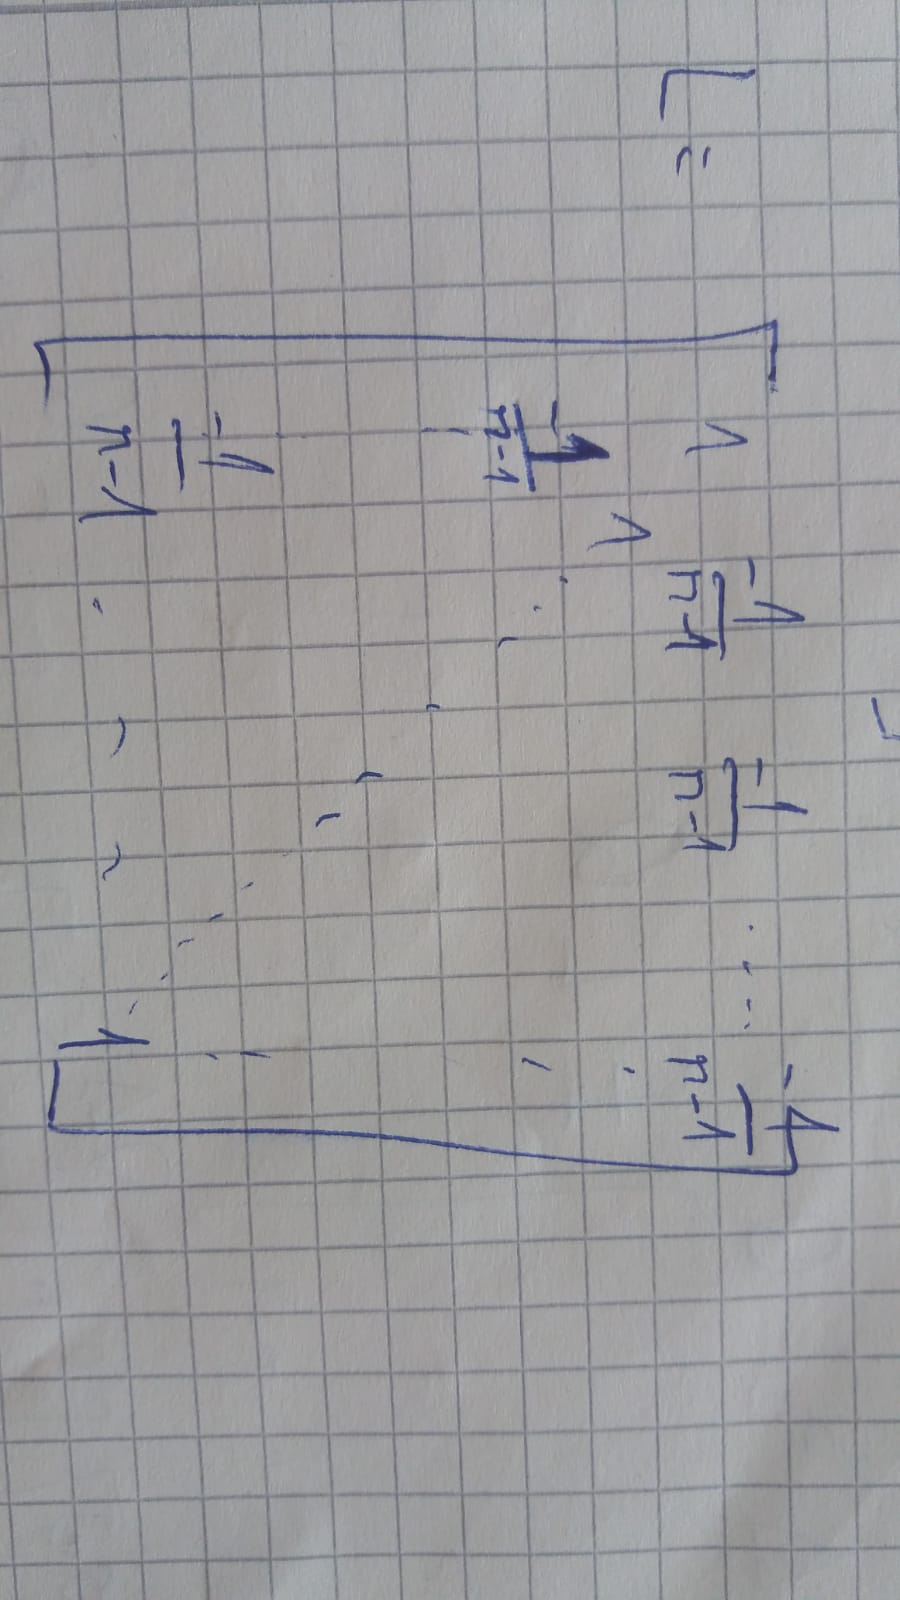 L = [ 1 -1/n-1 -1/n-1 ..... -1/n-1
1
-1/n-1
-1/n-1 . - - 1 ]